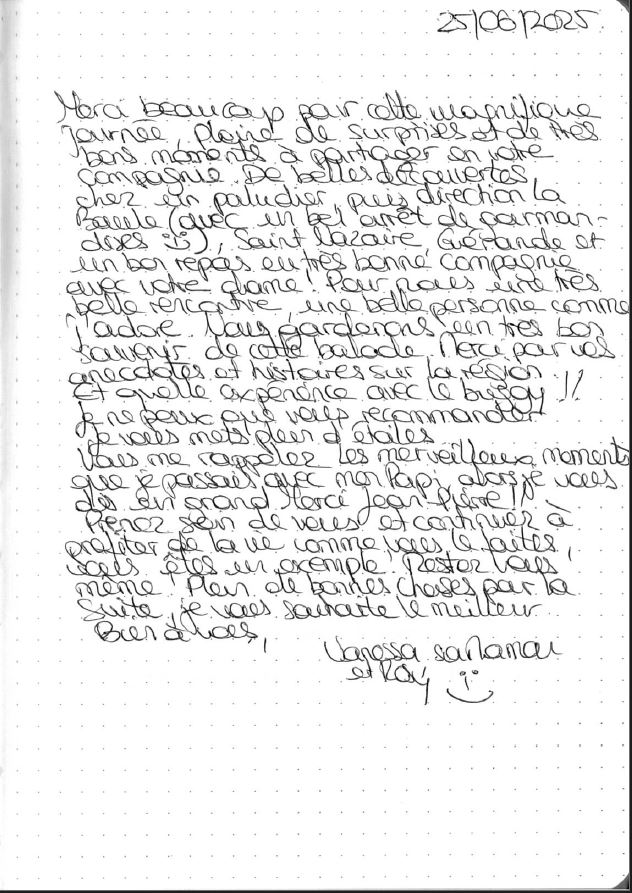 25/06/2025
Merci beaucoup pour cette magnifique
journée, pleind de surprises et de très
bons moments à partager en votre
compagnie. De belles découvertes,
chez un paludier, puis direction la
Baule (avec un bel arrêt de gourman-
dises :)), Saint Nazaire Guérande et
un bon repas en très bonne compagnie
avec votre dame! Pour nous une très
belle rencontre, une belle personne comme
j'adore. Nous garderons un très bon
souvenir de cette balade. Merci pour vos
anecdotes et histoires sur la région.
Et quelle expérience avec le buggy !!
Je ne peux que vous recommander
Je vous mets plein d'étoiles
Vous me rappelez les merveilleux moments
que je passais avec mon Papi, alors je vous
dis un grand Merci Jean Pierre!!
Prenez soin de vous et continuez à
profiter de la vie comme vous le faites,
vous êtes un exemple. Restez vous
même. Plein de bonnes choses pour la
suite, je vous souhaite le meilleur.
Bien à vous,
Vanessa
et :)